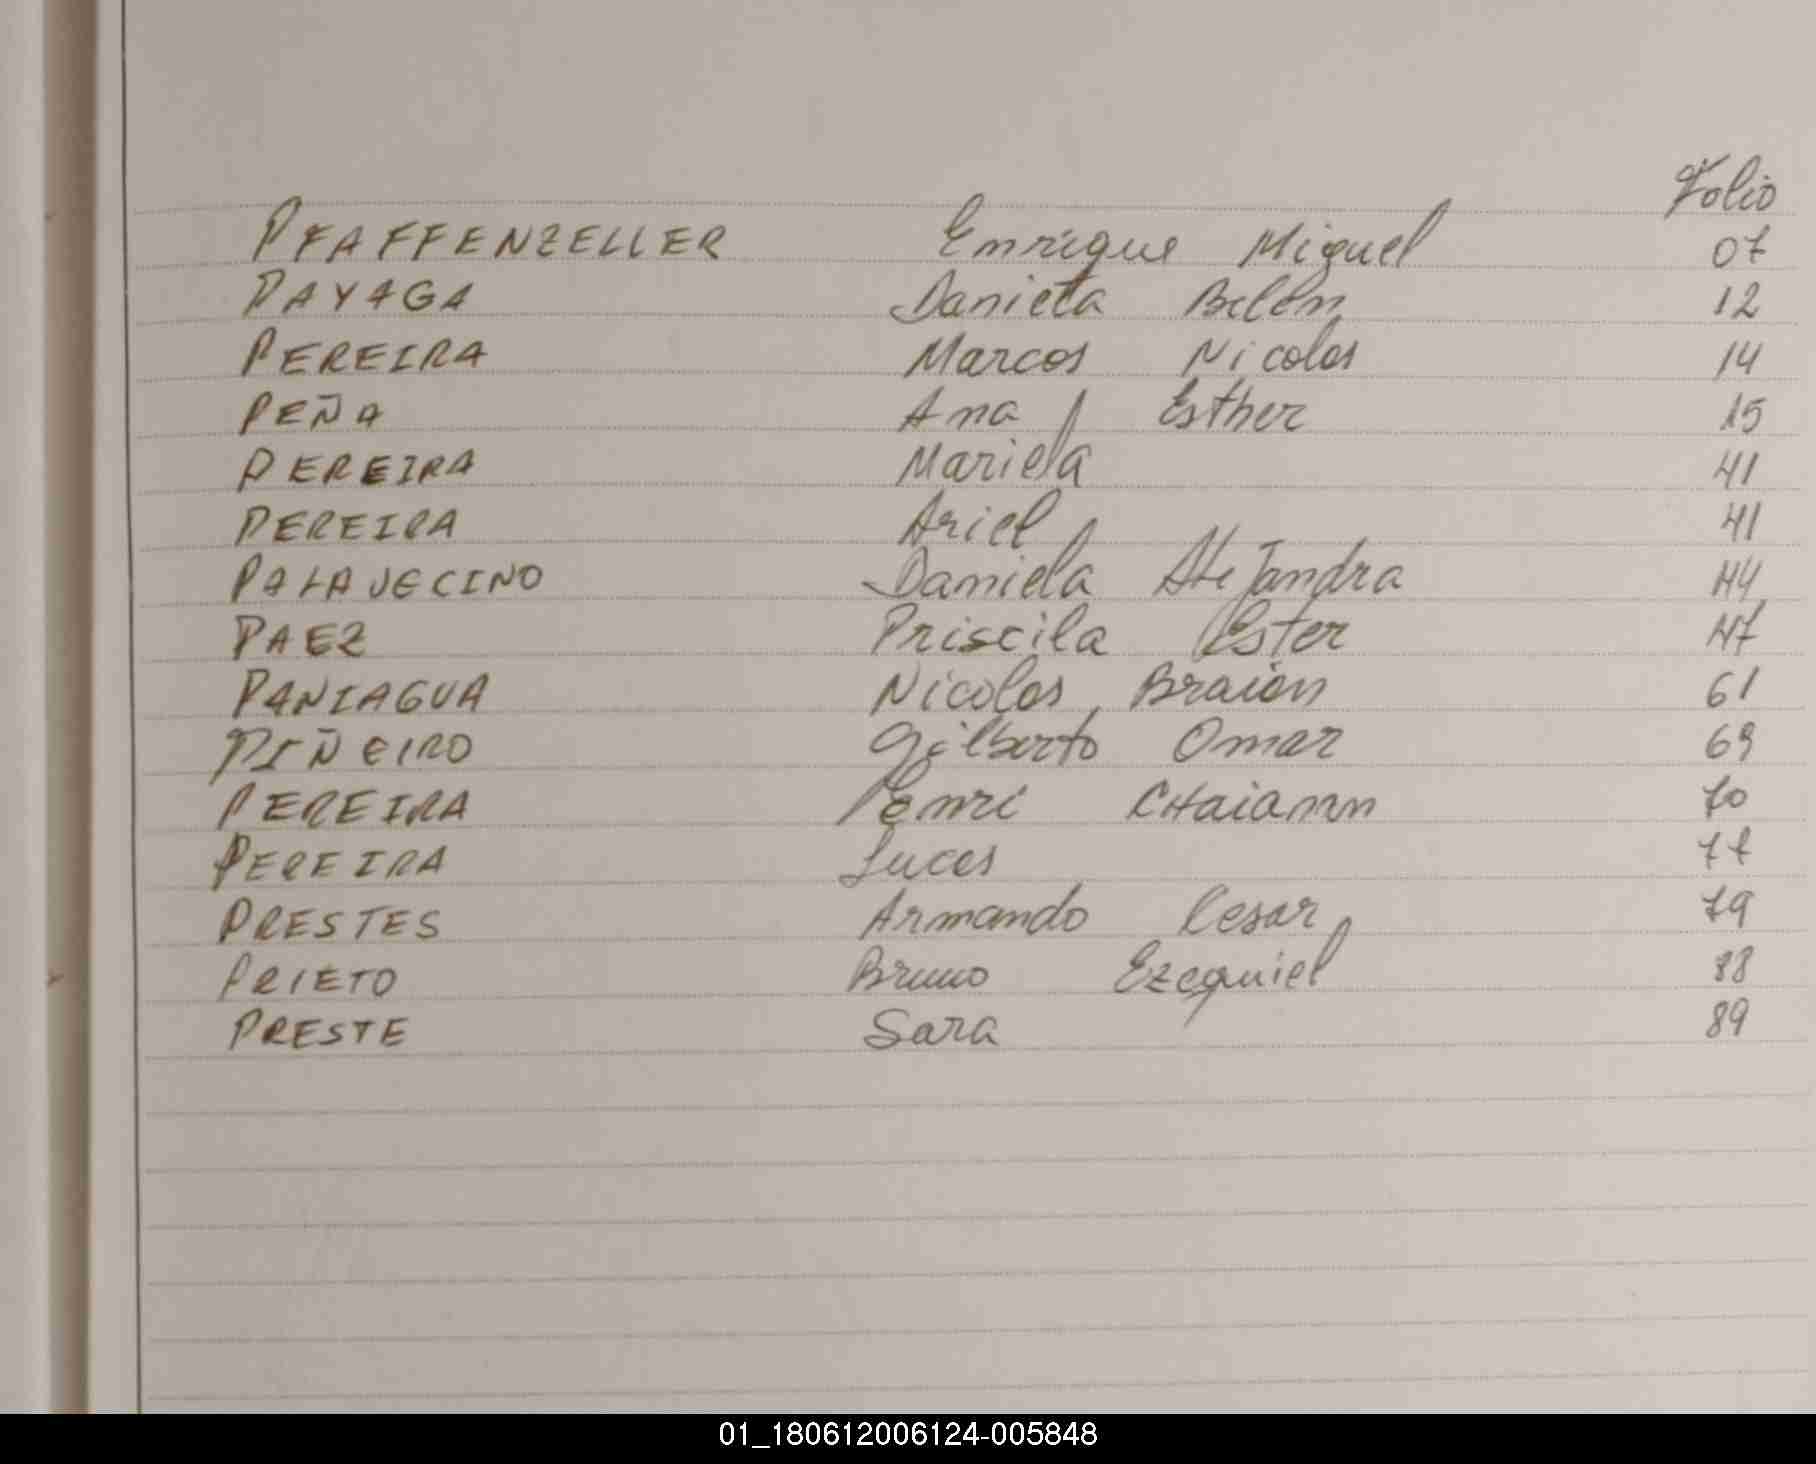 Folio
PFAFFENZELLER Enrique Miguel 07
PAYAGA Daniela Belén 12
PEREIRA Marcos Nicolas 14
PEÑA Ana Esther 15
PEREIRA Mariela 41
PEREIRA Ariel 41
PALAVECINO Daniela Alejandra 44
PAEZ Priscila Ester 47
PANIAGUA Nicolas Braian 61
PIÑEIRO Gilberto Omar 69
PEREIRA 70
PEREIRA Lucas 77
PRESTES Armando Cesar 79
PRIETO Bruno Ezequiel 88
PRESTE Sara 89
01_180612006124-005848